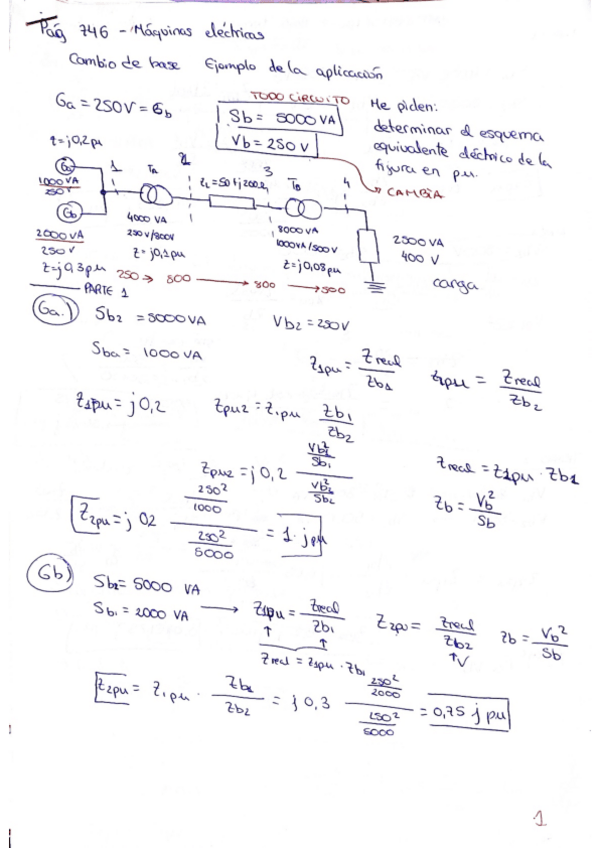 Pág 746 - Máquinas eléctricas
Cambio de base Ejemplo de la aplicación
Ga = 250V = Gb
TODO CIRCUITO
Sb = 5000 VA
Vb = 250 V
Me piden:
determinar el esquema
equivalente eléctrico de la
figura en p.u.
→ CAMBIA
z=j0,2pu
Ga
1000 VA
250 V
Gb
2000 VA
250 V
z=j0,3pu
1
Ta
4000 VA
250 V/800V
z=j0,1pu
2
ZL=50+j200Ω
3
Tb
8000 VA
1000VA/500V
z=j0,08pu
4
2500 VA
400 V
carga
250 → 800 → 800 → 500
PARTE 1
Ga.) Sb2 = 5000VA Vb2 = 250V
Sba = 1000 VA
Z1pu = Zreal / Zb1
Z2pu = Zreal / Zb2
Z1pu = j0,2
Zpu2 = Z1pu Zb1 / Zb2
Zreal = Z1pu · Zb1
Zpu2 = j0,2 (Vb1² / Sb1) / (Vb2² / Sb2)
Zb = Vb² / Sb
Z2pu = j 02 (250² / 1000) / (250² / 5000) = 1 · j pu
Gb) Sb2 = 5000 VA
Sb1 = 2000 VA → Z1pu = Zreal / Zb1
Z2pu = Zreal / Zb2
Zb = Vb² / Sb
Zreal = Z1pu · Zb1
Z2pu = Z1pu · Zb1 / Zb2 = j 0,3 (250² / 2000) / (250² / 5000) = 0,75 j pu
1